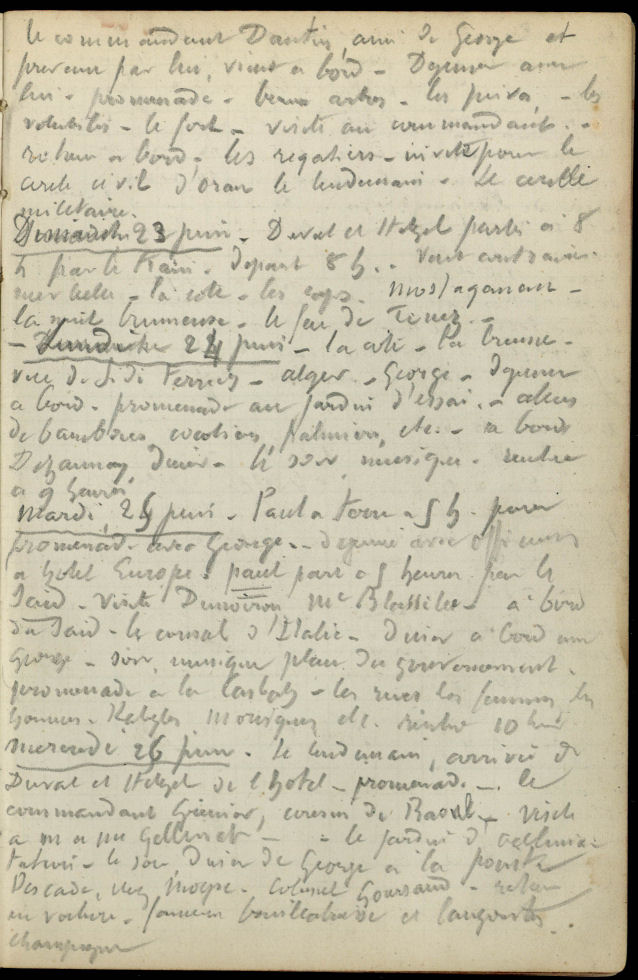 le commandant Dantin, ami de George et
prevenu par lui, vient a bord - Dejeuner avec
lui - promenade - beaux arbres - les - les
volubilis - le fort - visite au commandant. -
retour a bord, les regatiers - invités pour le
cercle civil d'Oran le lendemain - Le cercle
militaire.
Dimanche 23 juin - Duval et Hetzel partis a 8
h par le train. depart 8 h. - Vent contraire.
mer belle - la cote - les caps. Mostaganem -
la nuit brumeuse - le feu de Tenez. -
- Lundi 24 juin - la cote - la brume -
vue de Sidi Ferruch - alger - George - dejeuner
a bord. promenade au jardin d'essai. - allées
de bambous cocotiers, palmiers, etc. - a bord
Dezaunay diner - le soir musique. rentré
a 9 heures,
Mardi, 25 juin - Paul a terre a 5 h. pour
promenade avec George. - dejeuné avec officiers
a hotel Europe. paul part a 5 heures par le
Said - visite Dunoiron, Me Blasselle - a bord
du Said - le consul d'Italie - diner a bord avec
George - soir, musique place du gouvernement.
promenade a la Casbah - les rues les femmes les
hommes. Kabyles Mauriques etc. rentré 10 h
mercredi 26 juin. le lendemain, arrivée de
Duval et Hetzel de l'hotel - promenade -. le
commandant Grenier, cousin de Raoul - visite
a m et me - le jardin d'acclima-
tation - le soir, Diner de George a la pointe
Pescade, chez Moïse. Colonel Goursaud - retour
en voiture. fameuse bouillabaisse et langouste.
champagne